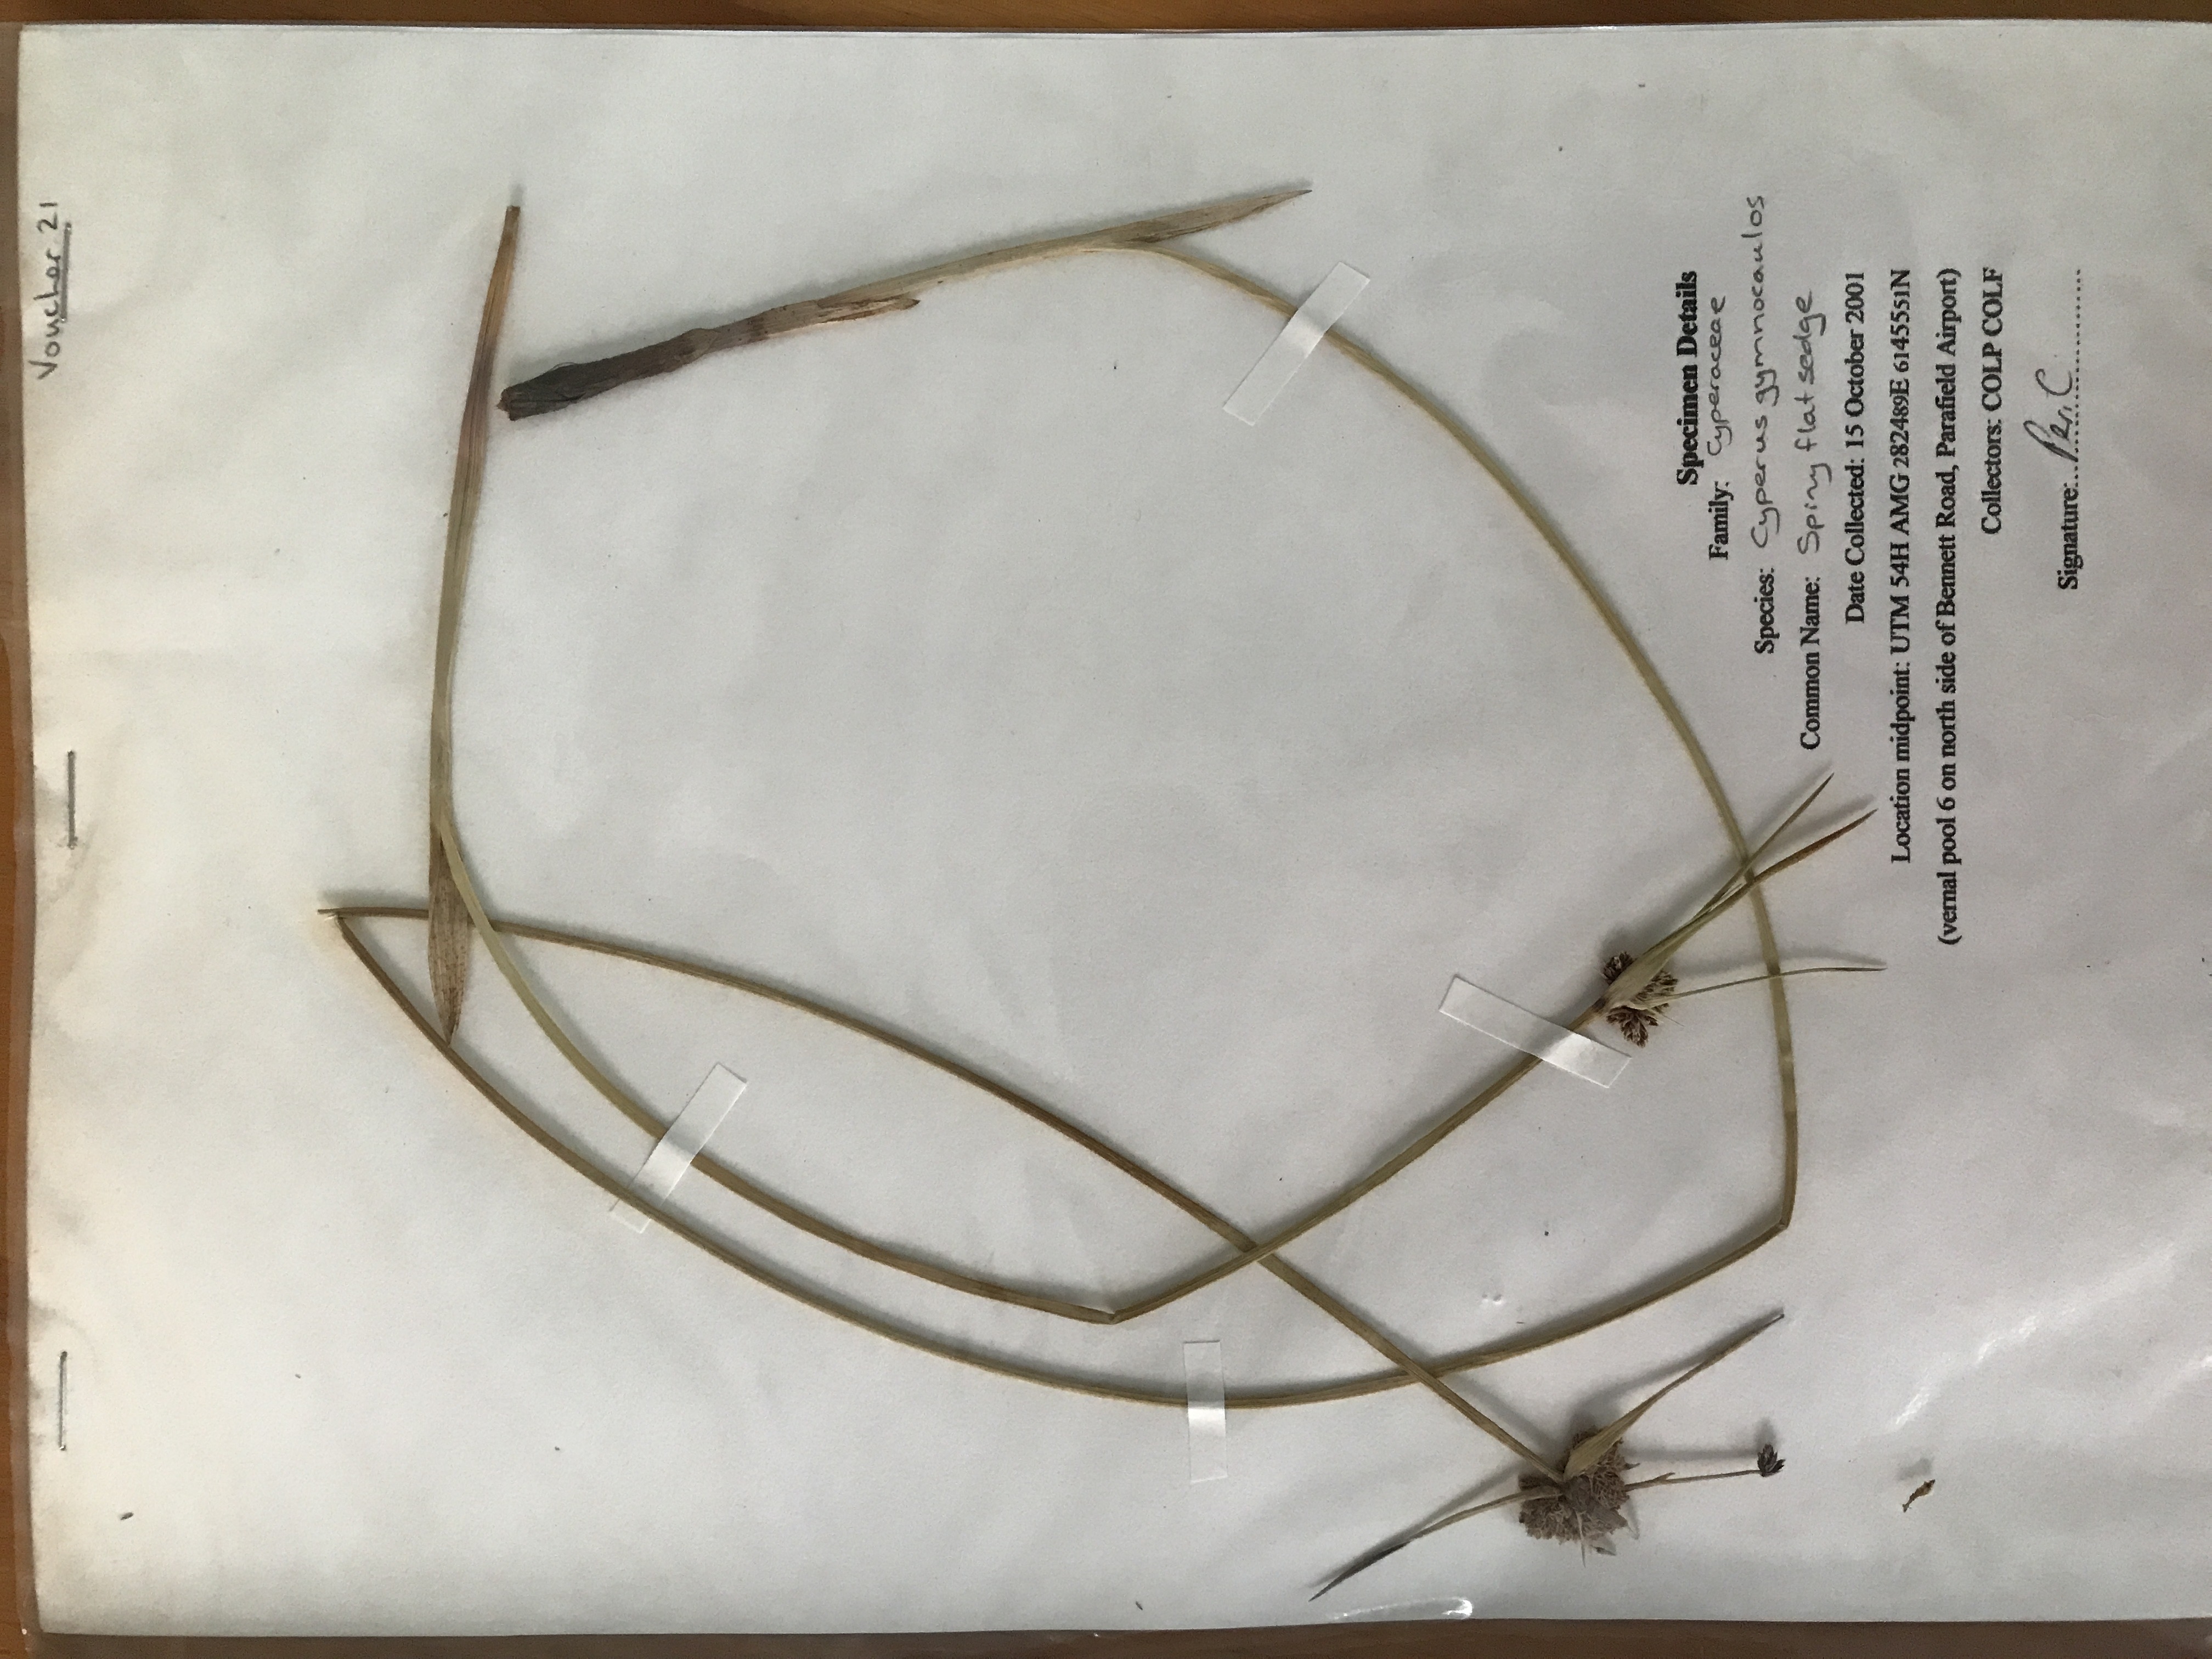 Voucher 21
Specimen Details
Family: Cyperaceae
Species: Cyperus gymnocaulos
Common Name: Spiny flat sedge
Date Collected: 15 October 2001
Location midpoint: UTM 54H AMG 282489E 6145551N
(vernal pool 6 on north side of Bennett Road, Parafield Airport)
Collectors: COLP COLF
Signature: Per. C